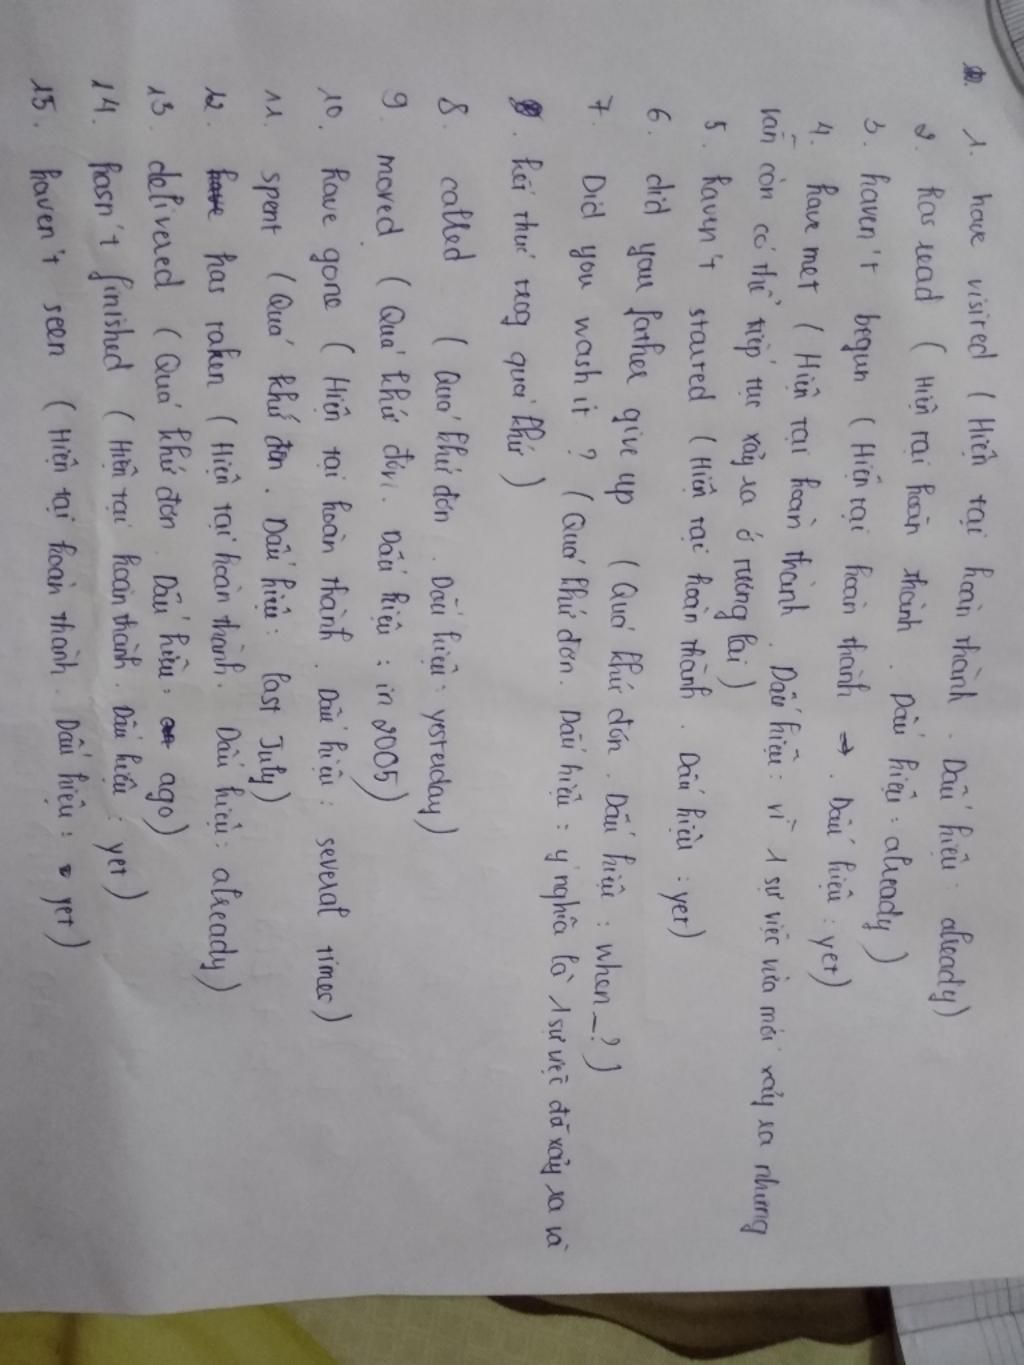 1. have visited (Hiện tại hoàn thành. Dấu hiệu: already)
2. has read (Hiện tại hoàn thành. Dấu hiệu: already)
3. haven't begun (Hiện tại hoàn thành. Dấu hiệu: yet)
4. have met (Hiện tại hoàn thành. Dấu hiệu: vì 1 sự việc vừa mới xảy ra nhưng
vẫn còn có thể tiếp tục xảy ra ở tương lai)
5. haven't started (Hiện tại hoàn thành. Dấu hiệu: yet)
6. did you father give up (Quá khứ đơn. Dấu hiệu: when_?)
7. Did you wash it? (Quá khứ đơn. Dấu hiệu: ý nghĩa là 1 sự việc đã xảy ra và
kết thúc trong quá khứ)
8. called (Quá khứ đơn. Dấu hiệu: yesterday)
9. moved (Quá khứ đơn. Dấu hiệu: in 2005)
10. have gone (Hiện tại hoàn thành. Dấu hiệu: several times)
11. spent (Quá khứ đơn. Dấu hiệu: last July)
12. has taken (Hiện tại hoàn thành. Dấu hiệu: already)
13. delivered (Quá khứ đơn. Dấu hiệu: ago)
14. hasn't finished (Hiện tại hoàn thành. Dấu hiệu: yet)
15. haven't seen (Hiện tại hoàn thành. Dấu hiệu: yet)